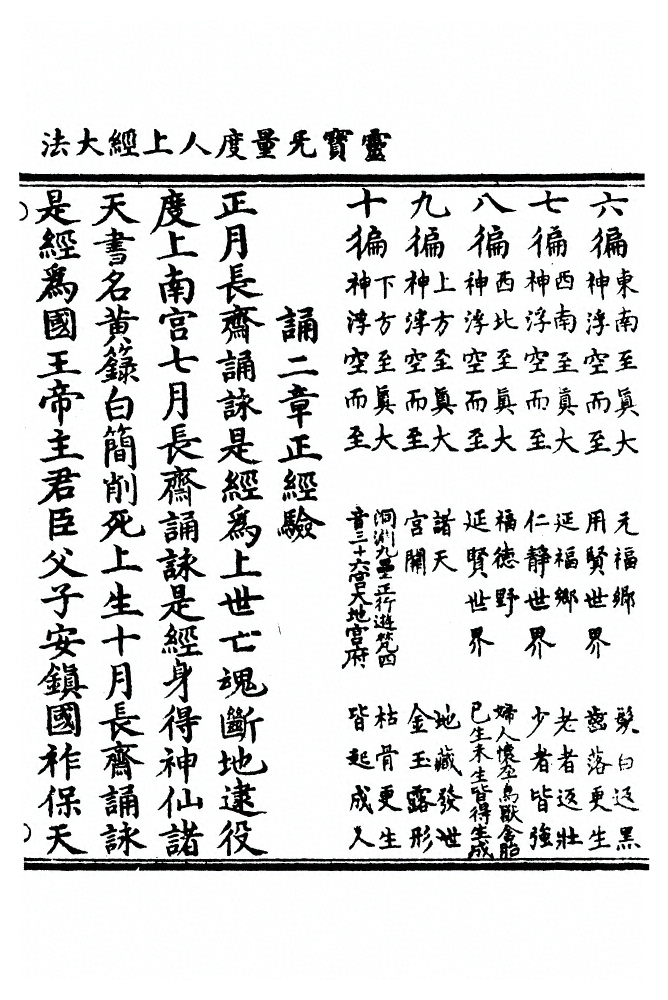 靈寶无量度人上經大法
六徧 東南至真大神浮空而至 元福鄉用賢世界 髮白返黑齒落更生
七徧 西南至真大神浮空而至 延福鄉仁静世界 老者返壯少者皆強
八徧 西北至真大神浮空而至 福德野延賢世界 婦人懷孕鳥獸含胎已生未生皆得生成
九徧 上方至真大神浮空而至 諸天宮闕 地藏發世金玉露形
十徧 下方至真大神浮空而至 洞淵九壘正行遊梵四音三十六宮大地宮府 枯骨更生皆起成人
誦二章正經驗
正月長齋誦詠是經爲上世亡魂斷地逮役
度上南宮七月長齋誦詠是經身得神仙諸
天書名黄籙白簡削死上生十月長齋誦詠
是經爲國王帝主君臣父子安鎮國祚保天